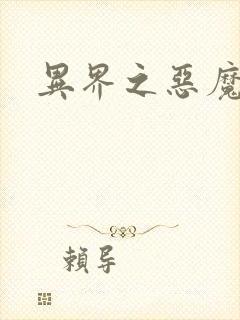 異界之惡魔
賴導